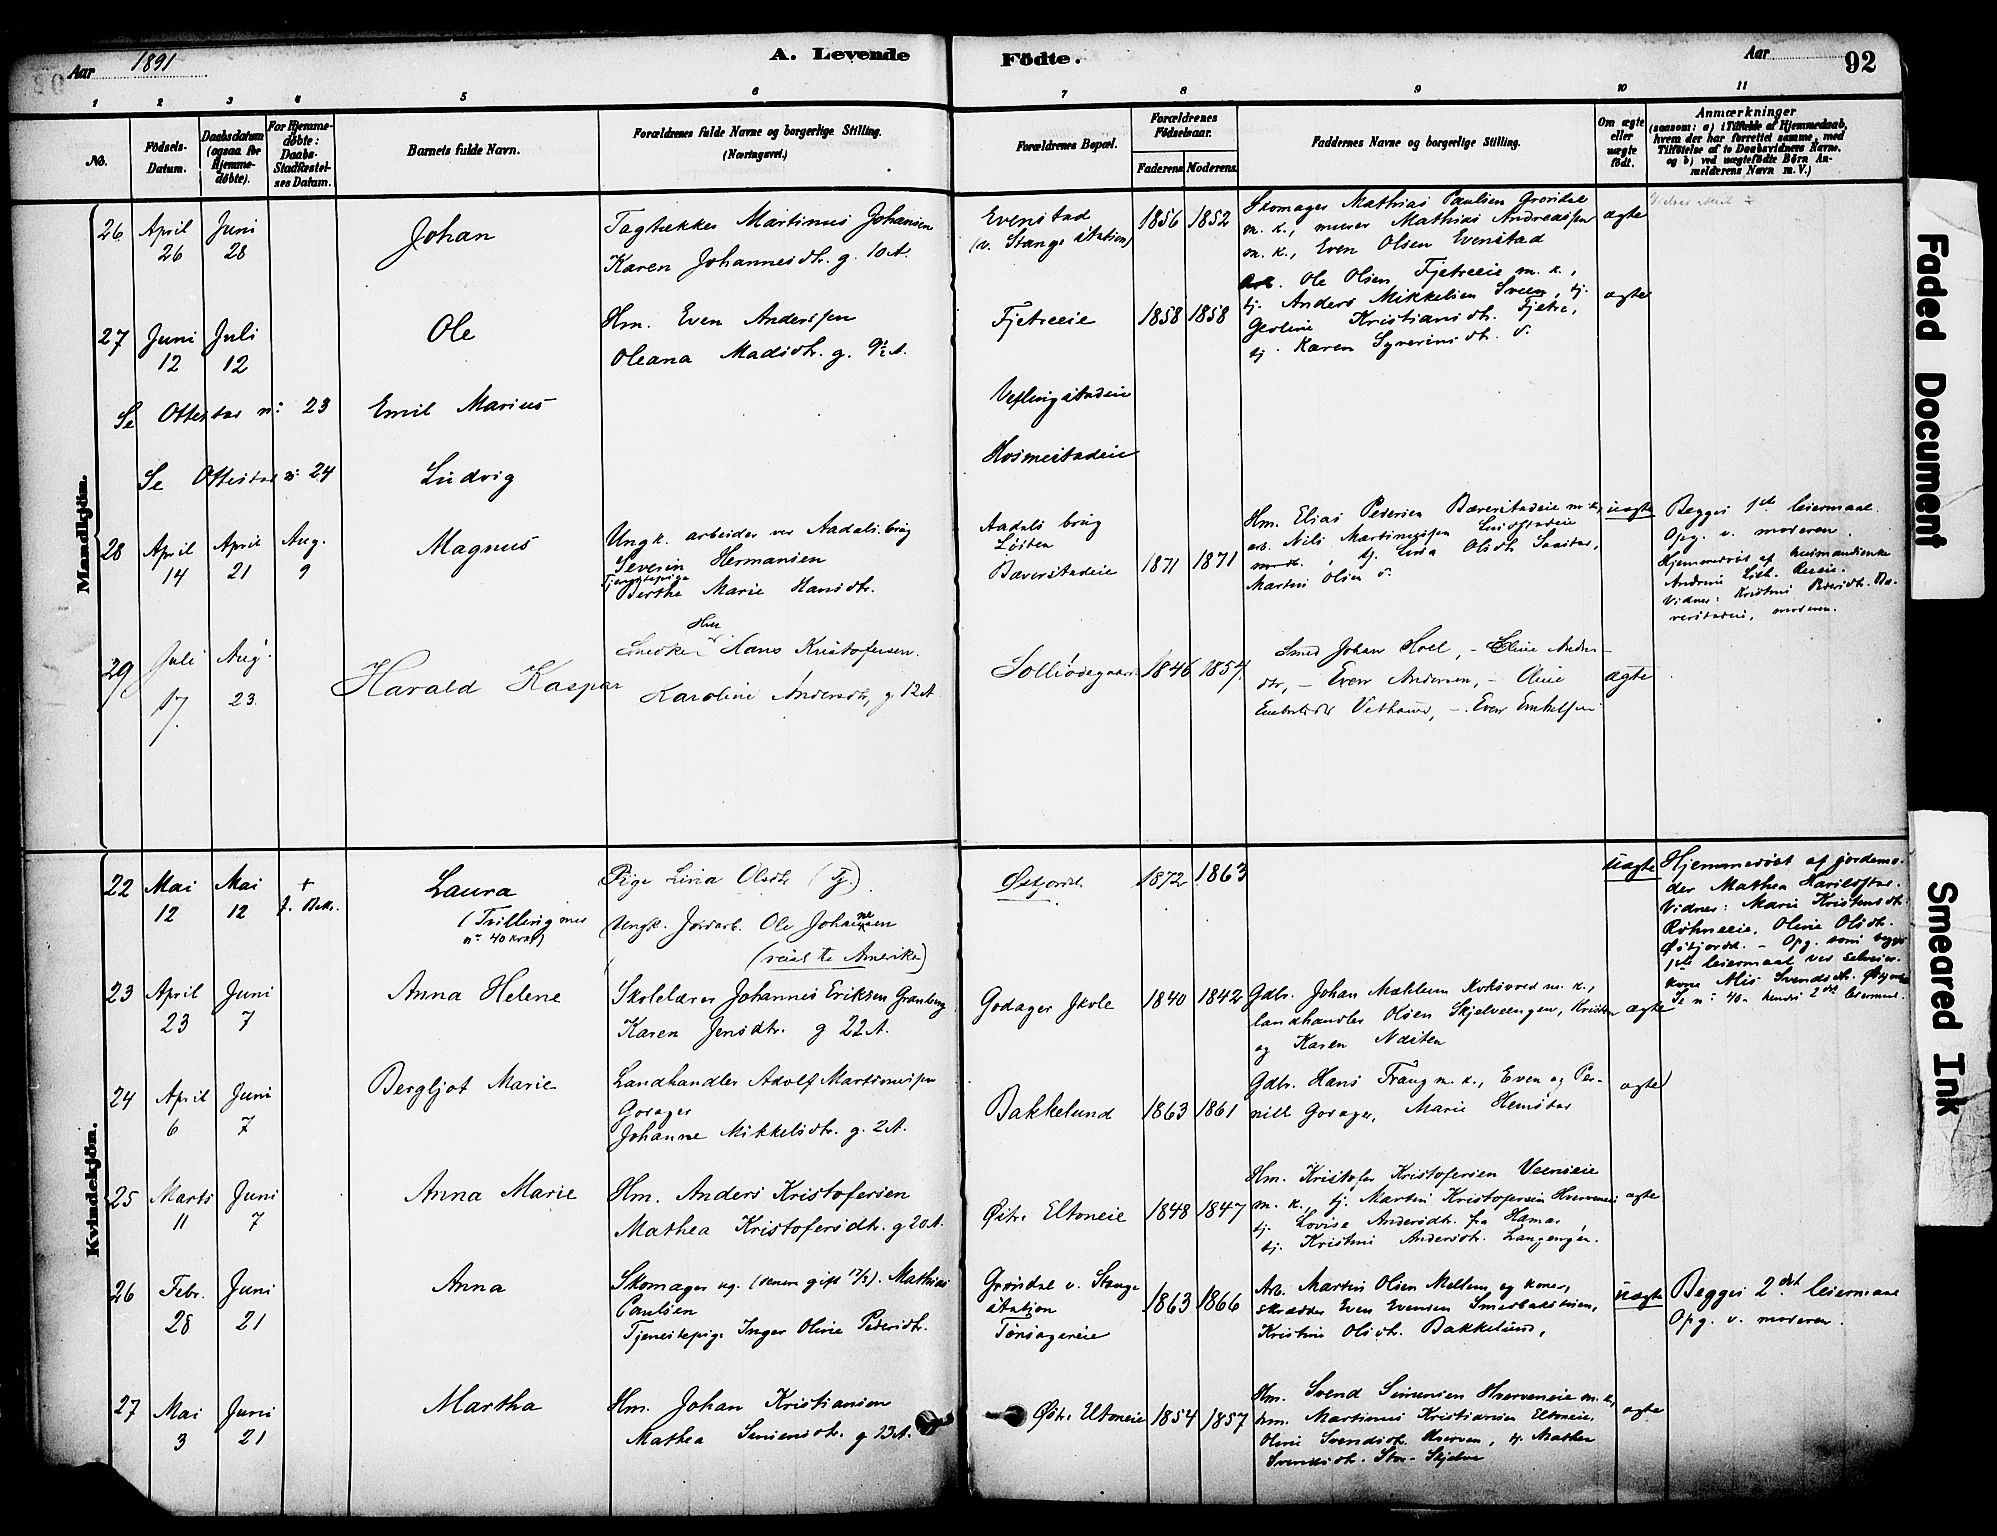 Aar 1891
A. Levende
Födte.
Aar
92
1 2 3 4 5 6 7 8 9 10 11
No.
Födsels-Datum.
Daabsdatum (ogsaa for Hjemme-döbte).
For Hjemme-döbte: Daabs-Stadfæstel-ses Datum.
Barnets fulde Navn.
Forældrenes fulde Navne og borgerlige Stilling. (Næringsvei.)
Forældrenes Bopæl.
Forældrenes Födselsaar.
Faderens Moderens
Faddernes Navne og borgerlige Stilling.
Om ægte eller uægte födt.
Anmærkninger
(saasom: a) i Tilfælde af Hjemmedaab,
hvem der har forrettet samme, med
Tilföielse af to Daabsvidners Navne,
og b) ved uægtefödte Börn An-
melderens Navn m. V.)
Mandkjön.
26 April 26 Juni 28
Johan
Tagtækker Martinus Johansen
Karen Johannesdtr. g. 10 A.
Evenstad
(v. Stange station)
1856 1852
Skomager Mathias Paulsen Grøndal
m. k., murer Mathias Andreassen
m. k., Even Olsen Evenstad
ægte
27 Juni 12 Juli 12
Ole
Hm. Even Anderssen
Oleana Madsdtr. g. 9½ A.
Fjetreeie
1858 1858
Arb. Ole Olsen Fjetreeie m. k.,
tj. Anders Mikkelsen Sveen, tj.
Kristiansdtr. Fjetre,
tj. Karen Syverinsdtr. s.
ægte
Se Ottestad n: 23
Emil Marius
Veflingstadeie
Se Ottestad n: 24
Ludvig
Hosmestadeie
28 April 14 April 21 Aug. 9
Magnus
Ungk. arbeider ved Aadals brug
Severin Hermansen
Tjenestepige
Berthe Marie Hansdtr.
Aadals brug
Løiten
Bæverstadeie
1871 1871
Hm. Elias Pedersen Bæverstadeie m. k.,
arb. Nils Martinussen
m. k., tj. Lina Olsdtr.
Martin Olsen s.
uægte
Begges 1ste leiermaal.
Opg. v. moderen.
Hjemmedøbt af husmandsenke
Andrine
Vidner: Kristine Pedersdtr. Bæ-
verstadeie, moderen.
29 Juli 17. Aug. 23.
Harald Kaspar
Snedker Hans Kristofersen.
Karoline Andersdtr, g 12 A.
Solliødegaard
1846 1857.
Smed Johan Hoel, – Eline Anders-
dtr, – Even Andersen, – Oline
Embretsdtr Vethammer, – Even Embretsen
ægte
Kvindekjön.
22 Mai 12 Mai 12 +
f. Bekr.
Laura
(Tvilling med
n: 40 kvk)
Pige Lina Olsdtr (tj.).
Ungk. Jordarb. Ole Johannesen
(reist te Amerika)
Østjordet.
1872 1863
uægte
Hjemmedøbt af jordemo-
der Mathea
Vidner: Marie Kristensdtr.
Røhneeie, Oline Olsdtr.
Østjordet. – Opg. som begges
1ste leiermaal ved selveier-
kone Alis Svendsdtr. Østjordet
Se n: 40 – hendes 2det leiermaal.
23 April 23 Juni 7
Anna Helene
Skolelærer Johannes Eriksen Granberg
Karen Jensdtr. g 22 A.
Godager Skole
1840 1842
Gdbr. Johan Mæhlum Korsvold m. k.,
landhandler Olsen Skjelveengen, Kristian
og Karen Næsten
ægte
24 April 6 Juni 7
Bergljot Marie
Landhandler Adolf Martinussen
Godager
Johanne Mikkelsdtr. g. 2 A.
Bakkelund
1863 1861
Gdbr. Hans Frang m. k., Even og Per-
nille Godager, Marie Hemstad
ægte
25 Marts 11 Juni 7
Anna Marie
Hm. Anders Kristofersen
Mathea Kristofersdtr. g 20 A.
Østre Eltoneie
1848 1847
Hm. Kristofer Kristofersen Veenseie
m. k., tj. Martin Kristofersen Hverveneie
tj. Lovise Andersdtr. fra Hamar,
tj. Kristine Andersdtr. Langengen.
ægte
26 Febr. 28 Juni 21
Anna
Skomager ug. (senere gift 17/5). Mathias
Paulsen
Tjenestepige Inger Oline Pedersdtr.
Grøndal v. Stange
station
Tønsagereie
1863 1866
Arb. Martin Olsen Mellem og kone,
skrædder Even Evensen Smedstadstuen,
Kristine Olsdtr. Bakkelund,
uægte
Begges 2det leiermaal
Opg. v. moderen.
27 Mai 3 Juni 21
Martha
Hm. Johan Kristiansen
Mathea Simensdtr. g 13 A.
Østre Utoneie
1854 1857
Hm. Svend Simensen Hverveneie m. k,
hm. Martinus Kristiansen Eltoneie,
Oline Svendsdtr. Hverven, tj. Mathea
Svendsdtr. Stor-Skjelve
ægte
Faded Document
Smeared Ink